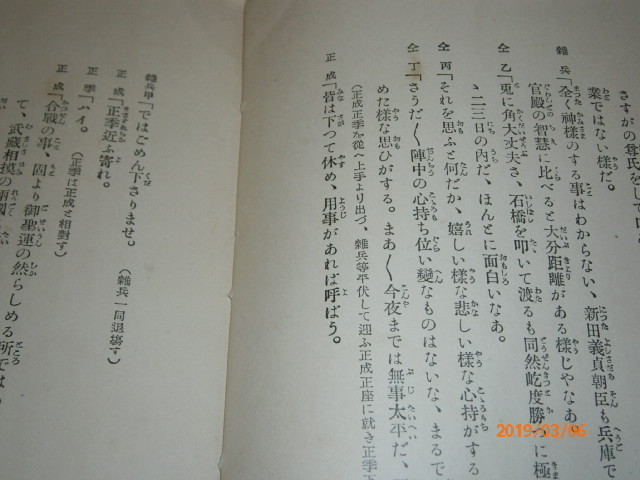 さすがの尊氏をして
業ではない様だ。
雜 兵「全く神様のする事はわからない、新田義貞朝臣も兵庫で
官殿の智慧に比べると大分距離がある様じやなあ
仝 乙「兎に角大丈夫さ、石橋を叩いて渡るも同然屹度勝つに極
ゝ二三日の内だ、ほんとに面白いなあ。
仝 丙「それを思ふと何だか、嬉しい様な悲しい様な心持がする
仝 丁「さうだ〱陣中の心持ち位い變なものはないな、まるで
めた様な思ひがする。まあ〱今夜までは無事太平だ、
(正成正季を從へ上手より出づ、雜兵等平伏して迎ふ正成正座に就き正季下
正 成「皆は下つて休め、用事があれば呼ばう。
雜兵甲「ではごめん下さりませ。 (雜兵一同退場す)
正 成「正季近ふ寄れ。
正 季「ハイ。 (正季は正成と相對す)
正 成「合戰の事、固より御聖運の然らしめる所では
て、武藏相摸の兩國
2019/03/06